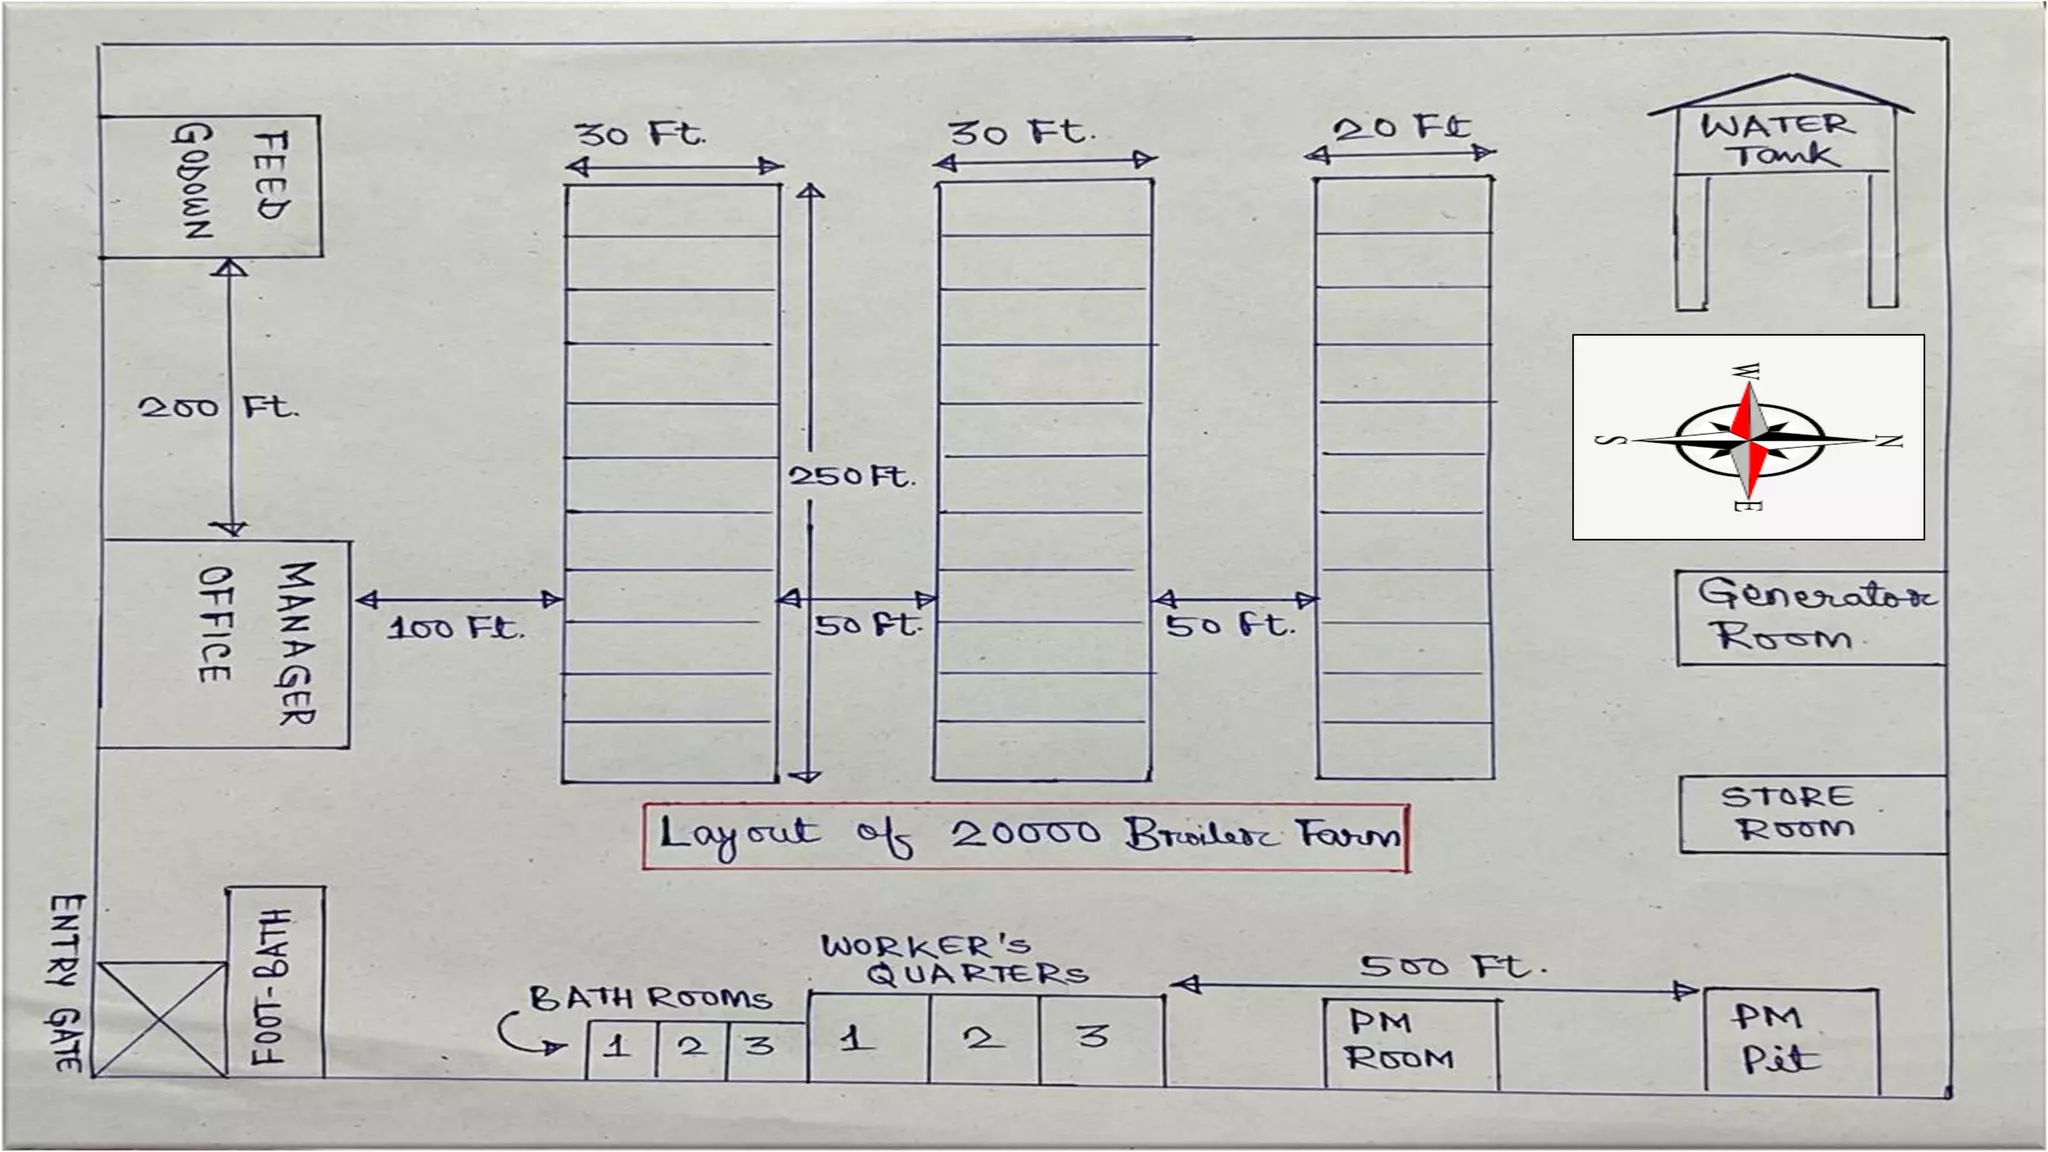 FEED
GODOWN
200 Ft.
MANAGER
OFFICE
100 Ft.
30 Ft.
250 Ft.
50 Ft.
30 Ft.
50 Ft.
20 Ft
WATER
Tank
W
S
N
E
Generator
Room.
STORE
ROOM
Layout of 20000 Broiler Farm
ENTRY GATE
FOOT-BATH
BATH ROOMS
1 2 3
WORKER'S
QUARTERS
1 2 3
500 Ft.
PM
ROOM
PM
Pit